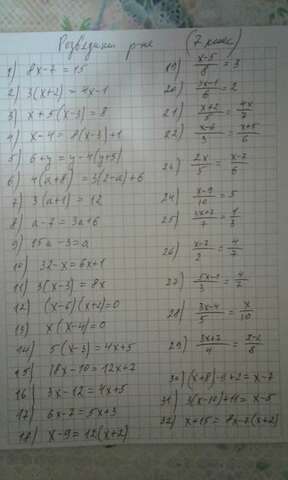 Розв'язати р-не (7 клас)
1) 8x-7=15
2) 3(x+2)=4x-1
3) x+5(x-3)=8
4) x-4=8(x-3)+1
5) 6+y=y-4(y+5)
6) 4(a+8)=3(2-a)+6
7) 3(a+1)=12
8) a-7=3a+6
9) 15a-3=a
10) 32-x=6x+1
11) 3(x-3)=8x
12) (x-6)(x+2)=0
13) x(x-4)=0
14) 5(x-3)=4x+5
15) 18x-10=12x+2
16) 3x-12=4x+5
17) 6x-7=5x+3
18) x-9=12(x+2)
19) (x-5)/8=3
20) (3x-1)/6=2
21) (x+2)/5=4x/7
22) (x-6)/3=(x+5)/6
23) 2x/5=(x-7)/6
24) (x-9)/10=5
25) (3x+2)/7=1/3
26) (x-2)/2=4/7
27) (5x-1)/3=4/2
28) (3x-4)/5=x/10
29) /4= /8
30) (x+8)-4+2=x-7
31) 3(x-10)+11=x-5
32) x+15=8x-7(x+2)